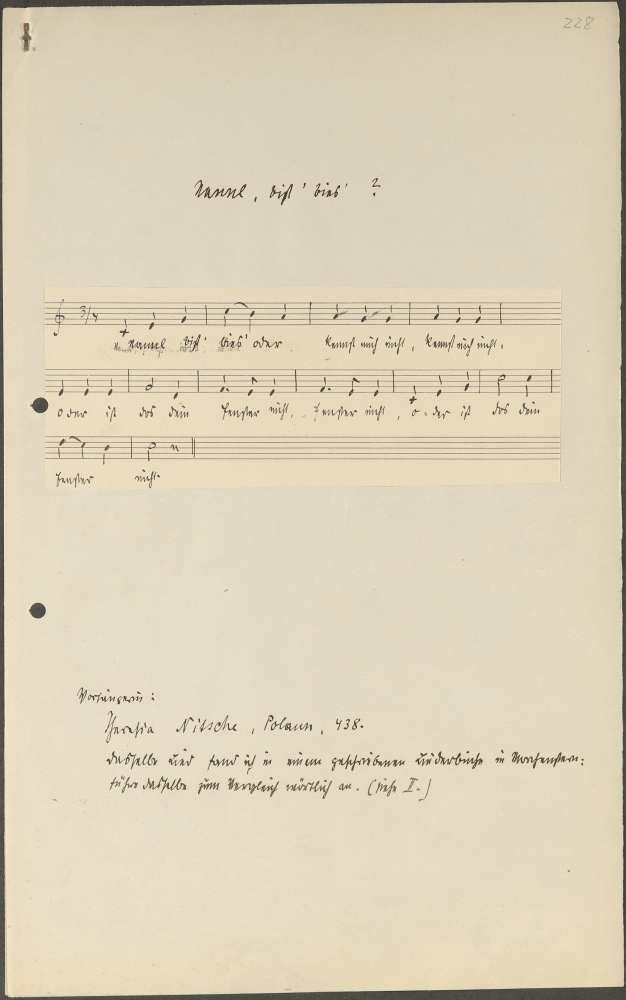 228
Nannl, bist' bies' ?
3/4
Nannl bist' bies' oder kennst mich nicht, kennst mich nicht,
oder ist das dein Fenster nicht, Fenster nicht, o-der ist das dein
Fenster nicht.
Vorsängerin:
Theresia Nitsche, Polaun, 438.
Dasselbe Lied fand ich in einem geschriebenen Liederbuche in Morchenstern;
führe dasselbe zum Vergleich wörtlich an. (siehe II.)